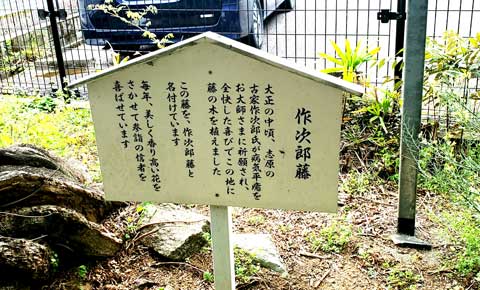 作次郎藤
大正の中頃、志原の
古家作次郎氏が病気平癒を
お大師さまに祈願され、
全快した喜びでこの地に
藤の木を植えました
この藤を、作次郎藤と
名付けています
毎年、美しく香り高い花を
さかせて参詣の信者を
喜ばせています